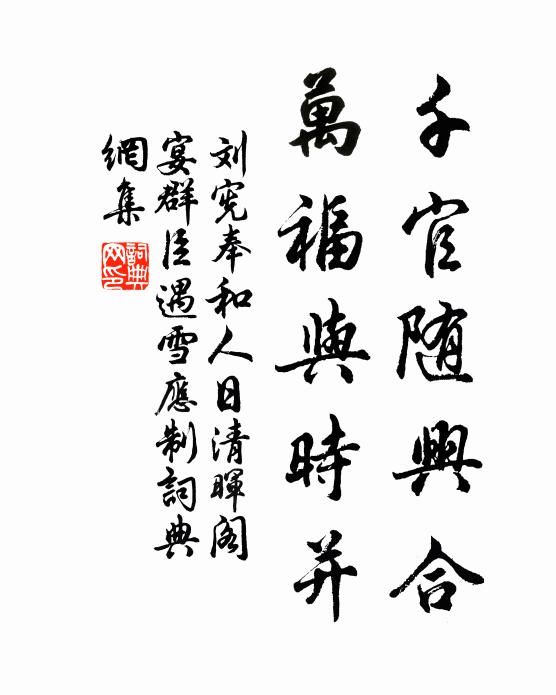 千官随興合
萬福與時并
刘宪奉和人日清暉阁
宴群臣遇雪應制詞典
網集
詞典
网印